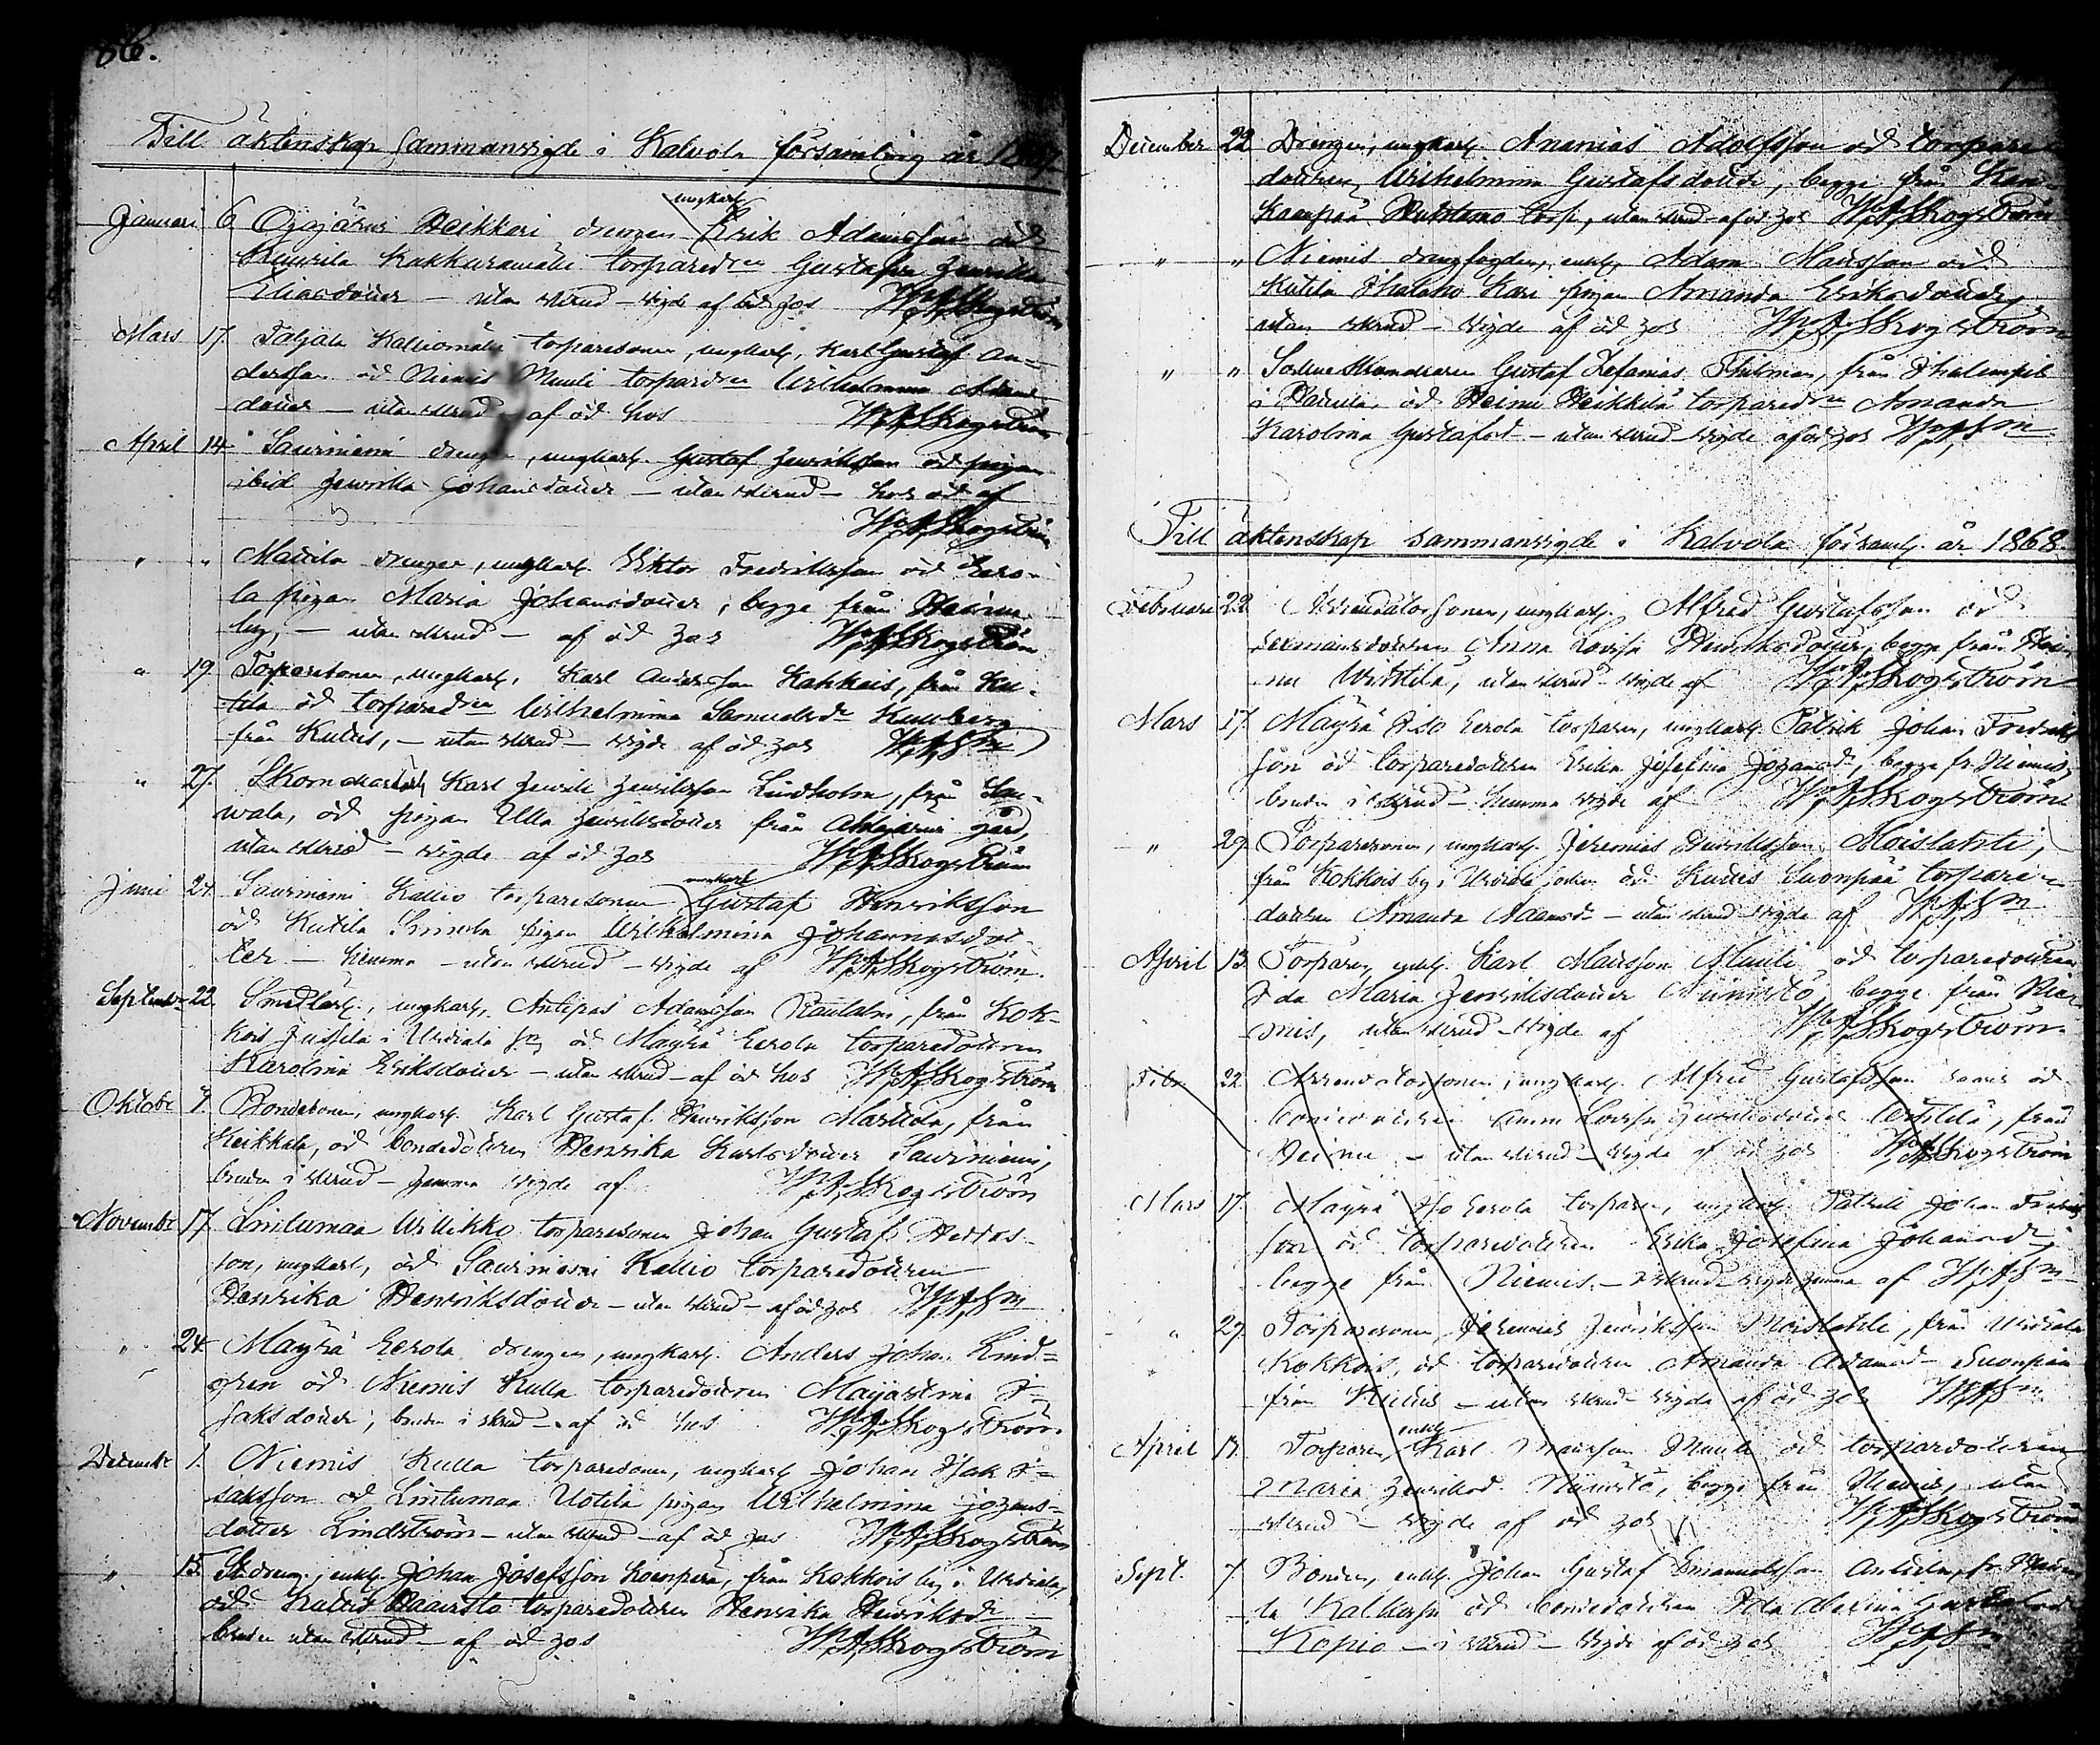 86.
Till äktenskap sammanvigde i Kalvola församling år 1867
Januari 6 Ojajärvi Heikkari drengen ungkarl Erik Adamsson och
Kakkuramäki torparedrn Gustafva Henrika
Eliasdotter – utan skrud – vigde af och hos WAfSkogström
Mars 17. Taljala Kalliomäki torparesonen, ungkarl, Karl Gustaf An=
dersson och Niemis Muuli torparedrn Wilhelmina
dotter – utan skrud – af och hos WAfSkogström
April 14 Saurniemi drengen, ungkarl. Gustaf Henriksson och pigan
ibid Henrika Johansdotter – utan skrud – hos och af
WAfSkogström
" " Mattila drengen, ungkarl Viktor Fredriksson och Eero-
la pigan Maria Johansdotter, begge från Heinu
by, – utan skrud – af och hos WAfSkogström
" 19 Torparesonen, ungkarl, Karl Andersson Kakkois, från Ku-
tila och torparedrn Wilhelmina Samuelsdr Kullberg
från Kutus, – utan skrud – vigde af och hos WAfSm
" 27. Skomakaren Karl Henrik Henriksson Lindholm, från Sau-
vala, och pigan Ulla Henriksdotter från Ahlajärvi gård,
utan skrud – vigde af och hos WAfSkogström
Juni 24. Saurniemi Kallio torparesonen ungkarl Gustaf Henriksson
och Kutila Simola pigan Wilhelmina Johannesdot-
ter – hemma – utan skrud – vigde af WAfSkogström.
September 22. Smedlärl., ungkarl, Antipas Adamsson Rautalin, från Kok-
kois Jussila i Urdiala sn, och Mäyrä Eerola torparedottren
Karolina Eriksdotter – utan skrud – af och hos WAfSkogström
Oktober 7. Bondesonen, ungkarl. Karl Gustaf Henriksson Marttila, från
Keikkala, och bondedottren Henrika Karlsdotter Saurniemi,
bruden i skrud – hemma vigde af WAfSkogström
November 17. Lintumaa Willikko torparesonen Johan Gustaf
son, ungkarl, och Saurniemi Kallio torparedottren
Henrika Henriksdotter – utan skrud – af och hos WAfSm
" 24 Mäyrä Eerola drengen, ungkarl. Anders Johan Lind=
gren och Niemis Kulla torparedottren Majastina I=
saksdotter, bruden i skrud – af och hos WAfSkogström.
December 1. Niemis Kulla torparesonen, ungkarl Johan Isak I=
saksson och Lintumaa Uotila pigan Wilhelmina Johans=
dotter Lindström – utan skrud – af och hos WAfSkogström
" 15. Skdreng., enkl. Johan Josefsson Koenperä, från Kokkois by i Urdiala,
och Kutus Haavisto torparedottren Henrika Henriksdr –
bruden utan skrud – af och hos WAfSkogström
December 22 Drengen, ungkarl Ananias Adolfsson och torpare
dottren Wilhelmina Gustafsdotter, begge från
torp, utan skrud – af och hos WAfSkogström
" " Niemis drengfogden, enkl. Adam Mattsson och
Kutila Ihalako Kari pigan Amanda Eriksdotter,
utan skrud – vigde af och hos WAfSkogström
" " Gustaf Zefanias Thilman, från Ihalempis
i Hattula, och Heinu Heikkilä torparedrn Amanda
Karolina Gustafsd – utan skrud – vigde af och hos WAfSm
Till äktenskap sammanvigde i Kalvola församl. år 1868.
Februari 22 Arrendatorsonen, ungkarl. Alfred Gustafsson och
sexmansdottren Anna Lovisa Henriksdotter, begge från Hei-
nu Wittilä, utan skrud – vigde af WAfSkogström
Mars 17. Mäyrä Iso Eerola torparen, ungkarl. Patrik Johan Fredriks
son och torparedottren Erika Josefina Johansdr, begge fr. Niemis,
bruden i skrud – hemma vigde af WAfSkogström
" 29. Torparesonen, ungkarl. Jeremias Henriksson Moislahti,
från Kokkois by i Urdiala socken och Kutus Suonpää torpare-
dottren Amanda Adamsdr – utan skrud – vigde af WAfSm
April 13. Torparen, enkl. Karl Mattsson Muuli och torparedottren
Ida Maria Henriksdotter Niinistö, begge från Nie-
mis, utan skrud – vigde af WAfSkogström.
Febr. 22. Arrendatorsonen, ungkarl. Alfred Gustafsson samt och
Anna Lovisa Henriksdotter Wittilä, från
Heinu – utan skrud – vigde af och hos WAfSkogström
Mars 17. Mäyrä Iso Eerola torparen, ungkarl Patrik Johan Fredriks
son och torparedottren Erika Josefina Johansdr,
begge från Niemis – i skrud – vigde hemma af WAfSm
" 29. Torparesonen Jeremias Henriksson Moislahti, från Urdiala
Kokkois, och torparedottren Amanda Adamsd – Suonpää
från Kutus – utan skrud – vigde af och hos WAfSm
April 13. Torparen, enkl. Karl Mattsson Muuli och torparedottren
Maria Henriksd. Niinistö, begge från Niemis, utan
skrud – vigde af och hos WAfSkogström
Sept. 7. Bonden, enkl. Johan Gustaf Emanuelsson Anttila, fr.
och bondedottren Ida Alexina Gustafsd
Kopio – i skrud – vigde af och hos WAfSm